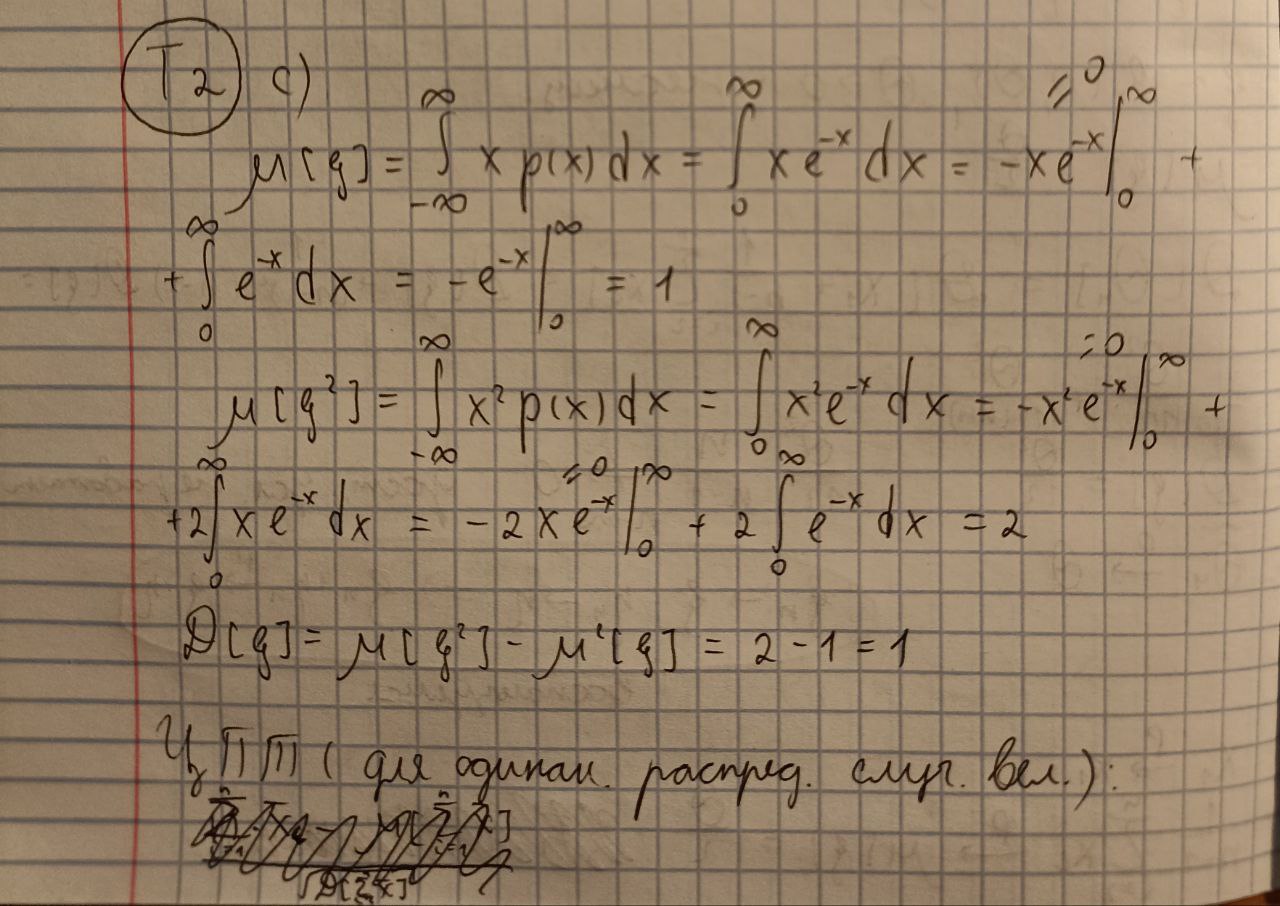 T2 c)
μ[ξ] = ∫_{-∞}^{∞} x p(x) dx = ∫_0^∞ x e^{-x} dx = -x e^{-x} |_0^∞ (=0) +
+ ∫_0^∞ e^{-x} dx = -e^{-x} |_0^∞ = 1
μ[ξ²] = ∫_{-∞}^{∞} x² p(x) dx = ∫_0^∞ x² e^{-x} dx = -x² e^{-x} |_0^∞ (=0) +
+ 2 ∫_0^∞ x e^{-x} dx = -2 x e^{-x} |_0^∞ (=0) + 2 ∫_0^∞ e^{-x} dx = 2
D[ξ] = μ[ξ²] - μ²[ξ] = 2 - 1 = 1
ЦПТ (для одинак. распред. случ. вел.):